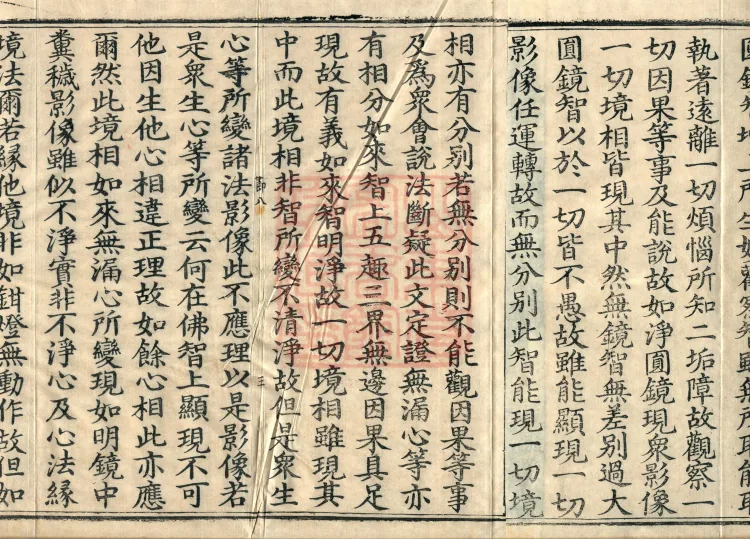 執著遠離一切煩惱所知二垢障故觀察一
切因果等事及能說故如淨圓鏡現衆影像
一切境相皆現其中然無鏡智無差別過大
圓鏡智以於一切皆不愚故雖能顯現一切
影像任運轉故而無分別此智能現一切境
相亦有分別若無分別則不能觀因果等事
及爲衆會說法斷疑此文定證無漏心等亦
有相分如來智上五趣三界無邊因果具足
現故有義如來智明淨故一切境相雖現其
中而此境相非智所變不清淨故但是衆生
心等所變諸法影像此不應理以是影像若
是衆生心等所變云何在佛智上顯現不可
他因生他心相違正理故如餘心相此亦應
爾然此境相如來無漏心所變現如明鏡中
糞穢影像雖似不淨實非不淨心及心法緣
境法爾若緣他境非如鉗燈無動作故但如